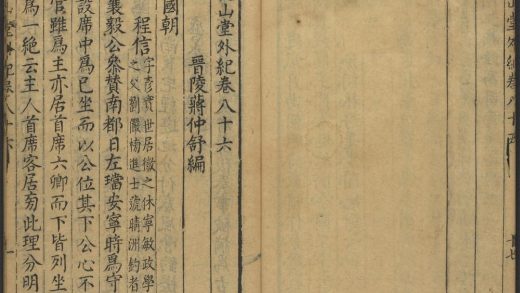 山堂外紀卷八十六
晋陵蔣仲舒編
國朝
程信
字彥實世居徽之休寧敏政學
之父劉儼榜進士號晴洲釣者
襄毅公參贊南都日左璫安寧時爲守
設席中爲已坐而以公位其下公心不
官雖爲主亦居首席六卿而下皆列坐
爲一絕云主人首席客居旁此理分明